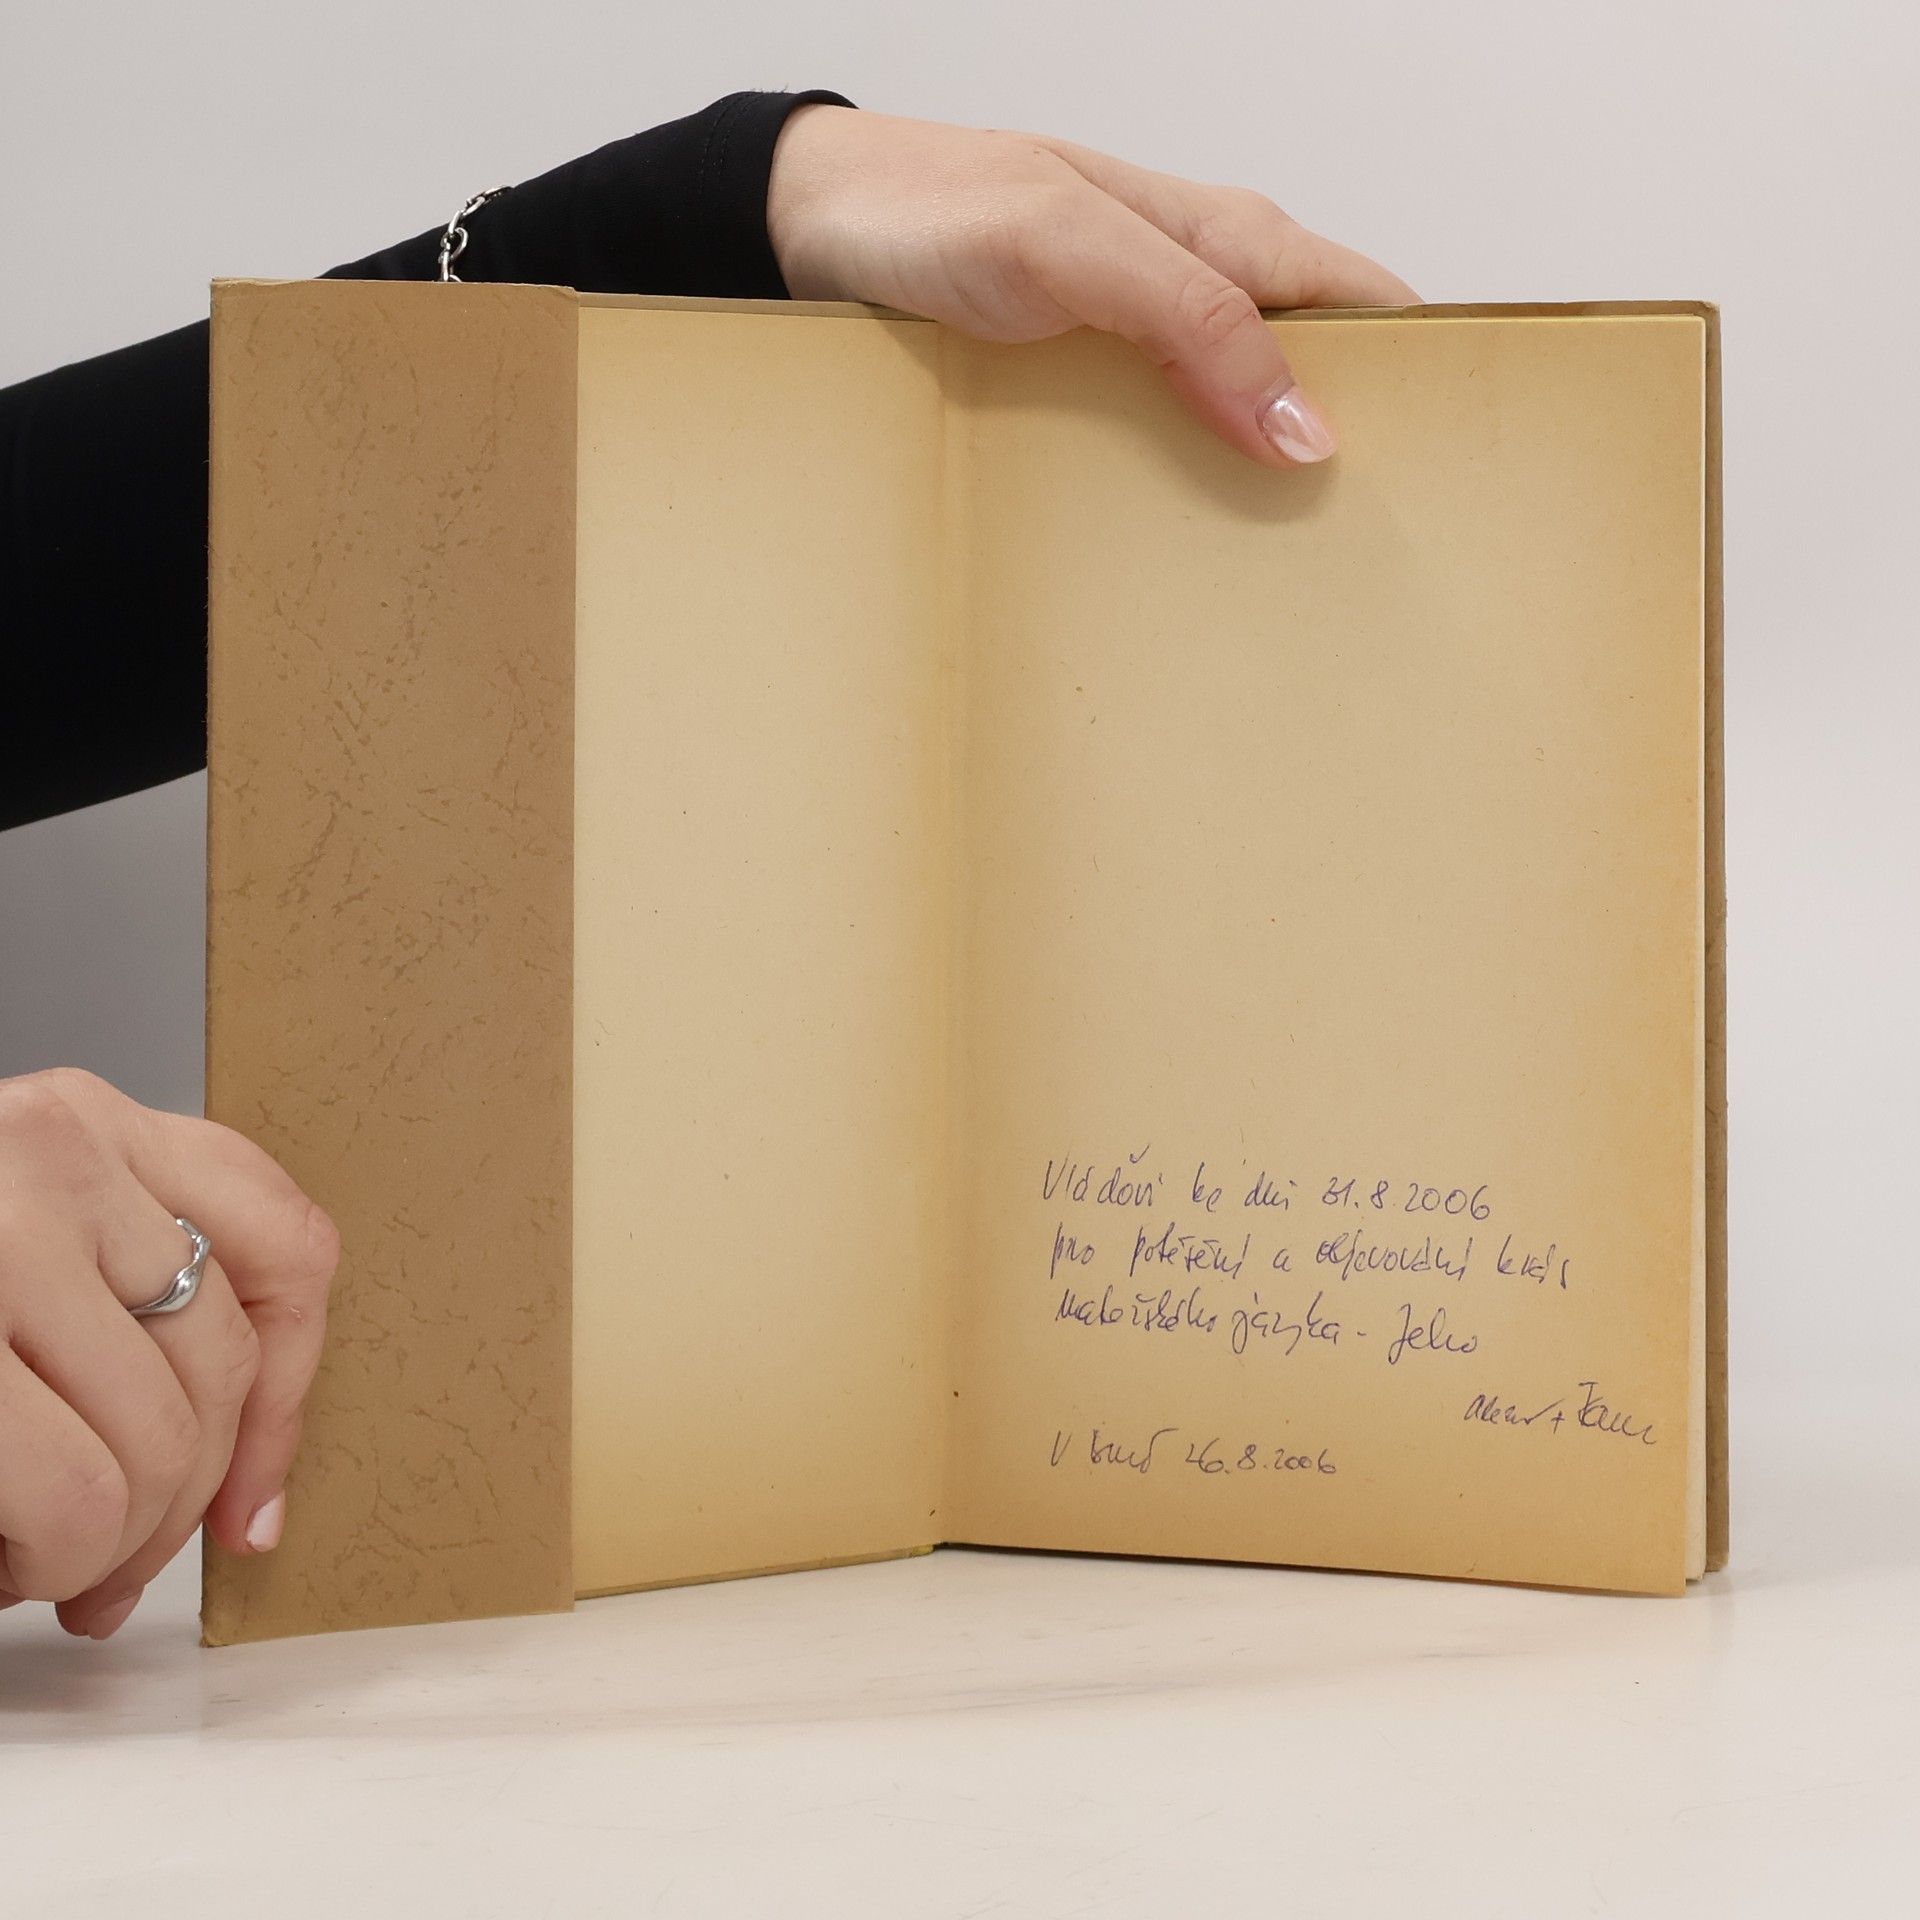 Vláďovi ke dni 31.8.2006
pro potěšení a objevování krás
mateřského jazyka - Jeho
V Brně 26.8.2006